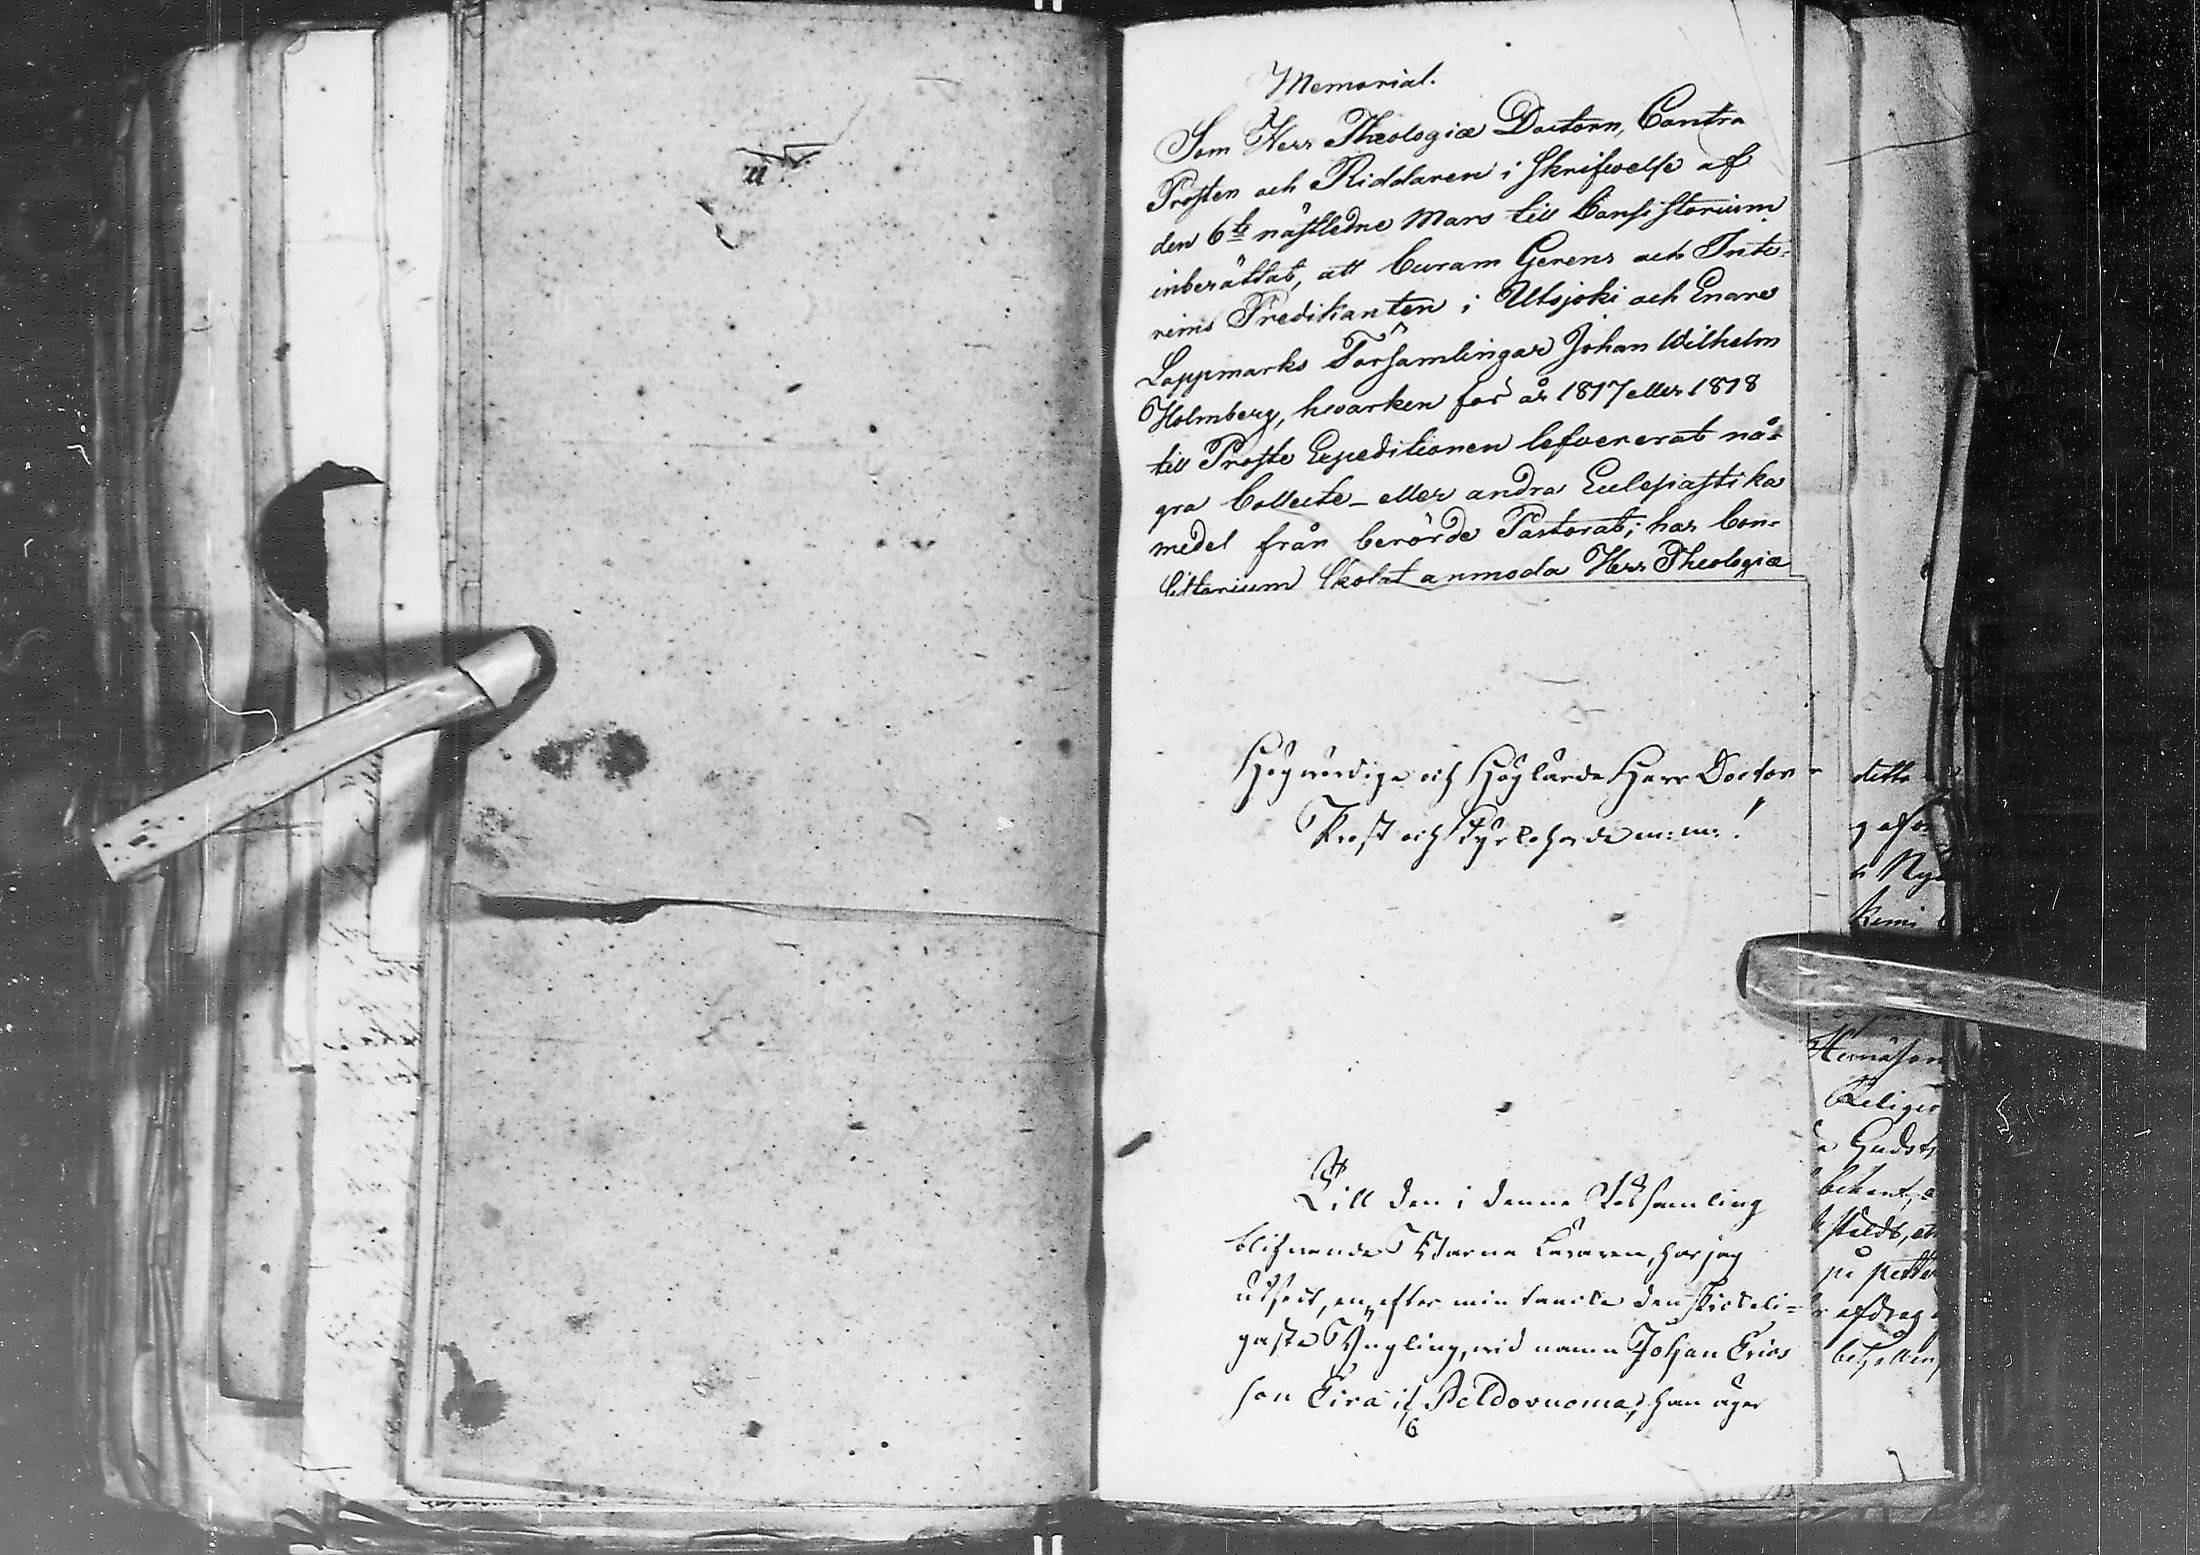 Memorial.
Som Herr Theologiæ Doctorn, Contra
Prosten och Riddaren i skrifwelse af
den 6te nästledne Mars till Consistorium
inberättat, att Curam Gerens och Inte-
rims Predikanten i Utsjoki och Enare
Lappmarks Församlingar Johan Wilhelm
Holmberg, hwarken för år 1817 eller 1818
till Proste Expeditionen lefvererat nå-
gra Collecte- eller andra Eclesiastika
medel från berörde Pastorat; har Con-
sistorium skolat anmoda Herr Theologiæ
Högwördige och Höglärde Herr Doctor
Prost och Kyrkoherde m: m: !
Till den i denne Församling
blifwande Barna Läraren, har jag
utsedt, en, efter min tancke den skickeli-
gaste Yngling, wid namn Johan Erics
son Eira if Peldovuoma, han äger
6
detta
Kemi
Religio
bekant,
afdrag